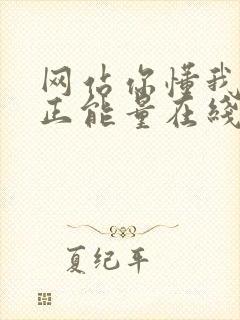 网站你懂我
正能量在线
夏纪年